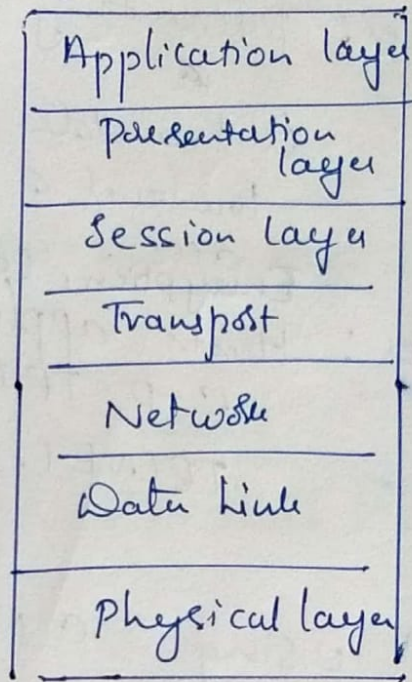 Application layer
Presentation
layer
Session layer
Transport
Network
Data Link
Physical layer